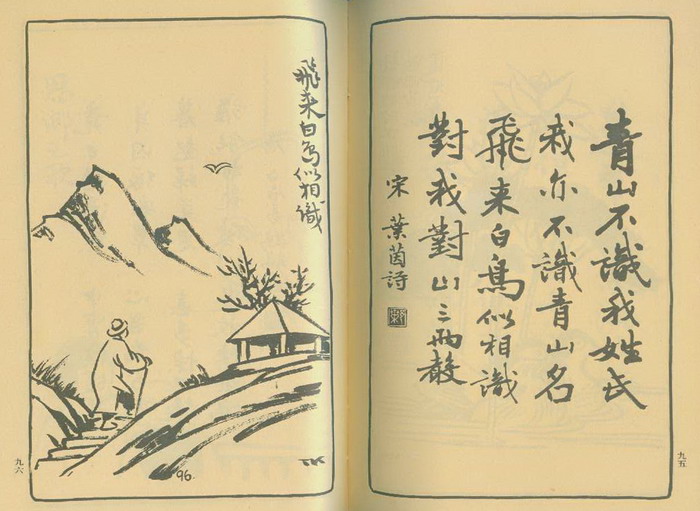 青山不識我姓氏
我亦不識青山名
飛来白鳥似相識
對我對山三兩聲
宋 葉茵詩
九五
飛来白鳥似相識
TK
96.
九六